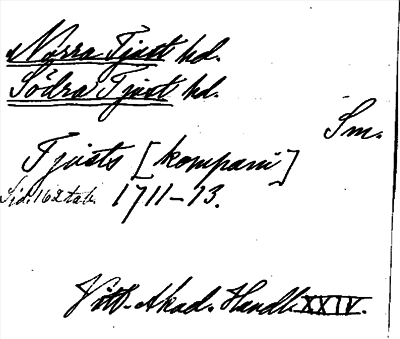 Norra Tjust hd.
Södra Tjust hd.
Sm.
Tjusts [kompani]
Sid. 162 tab. 1711–13.
Vitt. Akad. Handl. XXIV.